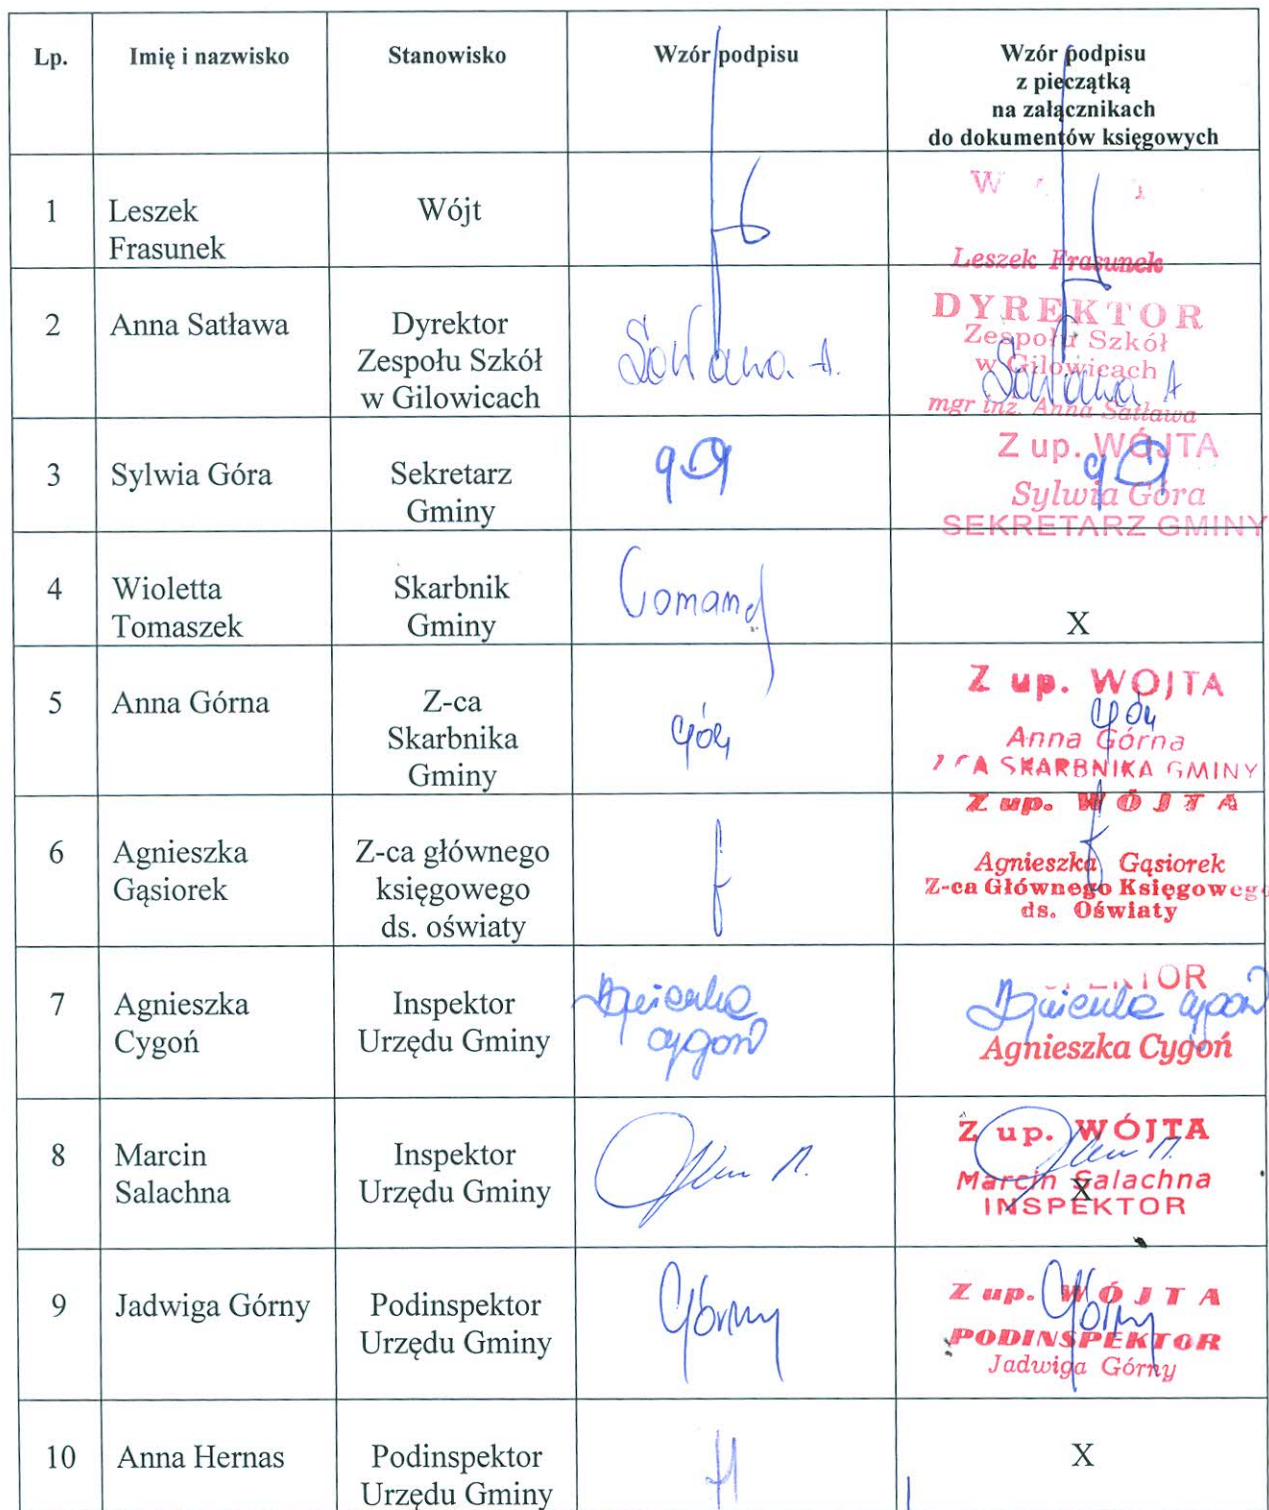 Lp.
Imię i nazwisko
Stanowisko
Wzór podpisu
Wzór podpisu
z pieczątką
na załącznikach
do dokumentów księgowych
1
Leszek
Frasunek
Wójt
Leszek Frasunek
2
Anna Satława
Dyrektor
Zespołu Szkół
w Gilowicach
DYREKTOR
Zespołu Szkół
w Gilowicach
mgr inż. Anna Satława
3
Sylwia Góra
Sekretarz
Gminy
Z up. WÓJTA
Sylwia Góra
SEKRETARZ GMINY
4
Wioletta
Tomaszek
Skarbnik
Gminy
X
5
Anna Górna
Z-ca
Skarbnika
Gminy
Z up. WÓJTA
Anna Górna
SKARBNIKA GMINY
6
Agnieszka
Gąsiorek
Z-ca głównego
księgowego
ds. oświaty
Z up. WÓJTA
Agnieszka Gąsiorek
Z-ca Głównego Księgowego
ds. Oświaty
7
Agnieszka
Cygoń
Inspektor
Urzędu Gminy
Agnieszka
Cygoń
Agnieszka Cygoń
Agnieszka Cygoń
8
Marcin
Salachna
Inspektor
Urzędu Gminy
Z up. WÓJTA
Marcin Salachna
X
INSPEKTOR
9
Jadwiga Górny
Podinspektor
Urzędu Gminy
Górny
Z up. WÓJTA
Górny
PODINSPEKTOR
Jadwiga Górny
10
Anna Hernas
Podinspektor
Urzędu Gminy
X